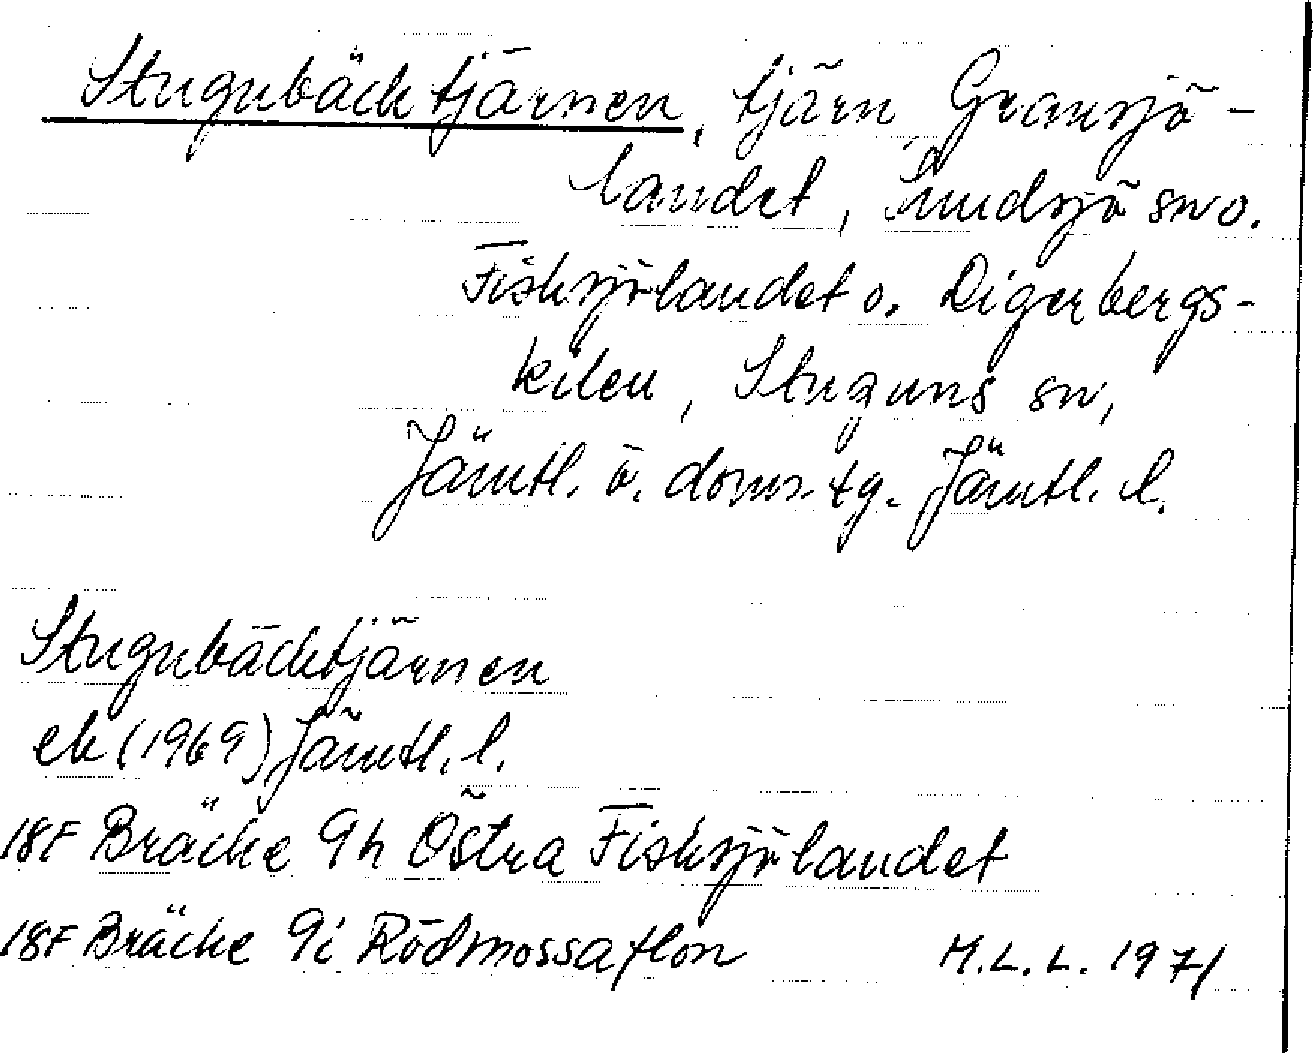 Stugubäcktjärnen, tjärn, Gransjö-
landet, Sundsjö sn o.
Fisksjölandet o. Digerbergs-
kilen, Stuguns sn,
Jämtl. ö. doms. tg. Jämtl. l.
Stugubäcktjärnen
ek (1969) Jämtl. l.
18F Bräcke 9h Östra Fisksjölandet
18F Bräcke 9i Rödmossaflon M.L.L. 1971